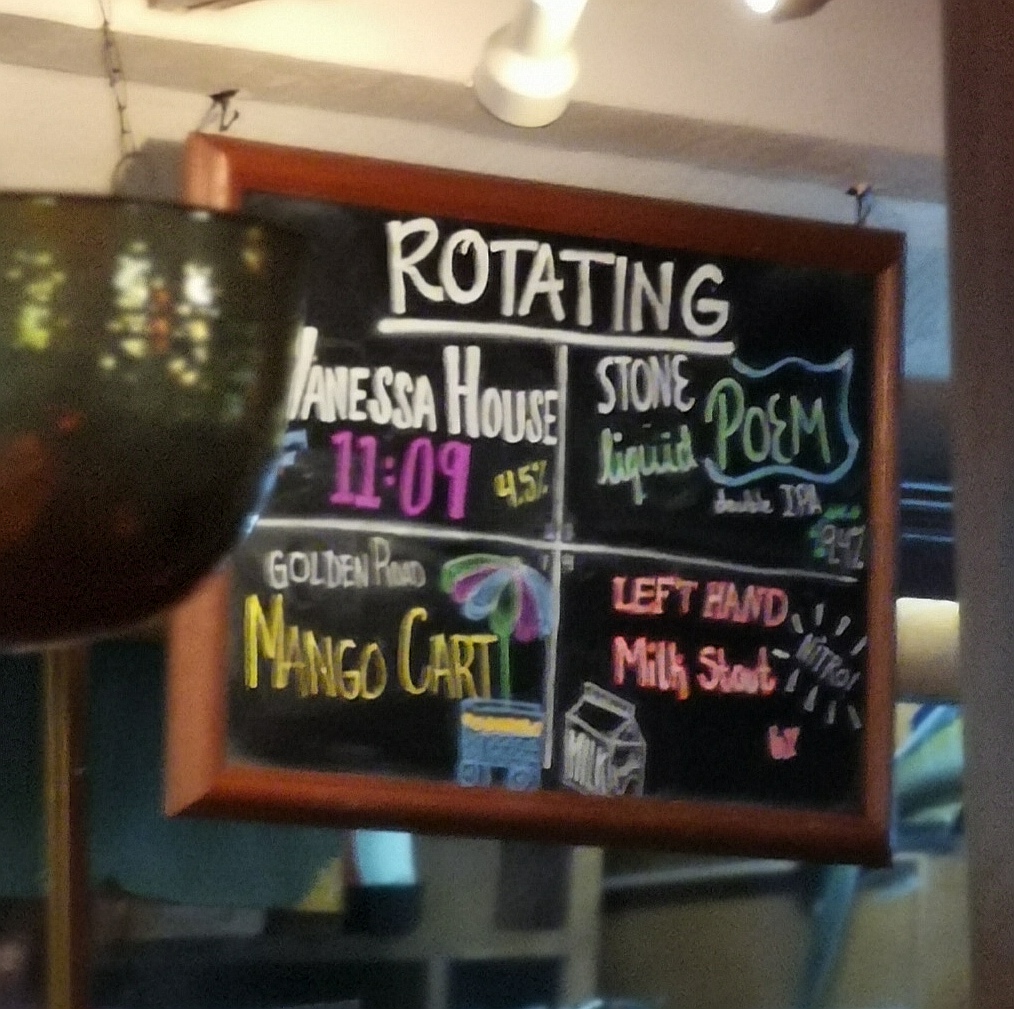 ROTATING
VANESSA HOUSE
11:09
4.5%
STONE
liquid POEM
double IPA
9.4%
GOLDEN ROAD
MANGO CART
LEFT HAND
Milk Stout
NITRO!
6%
MILK